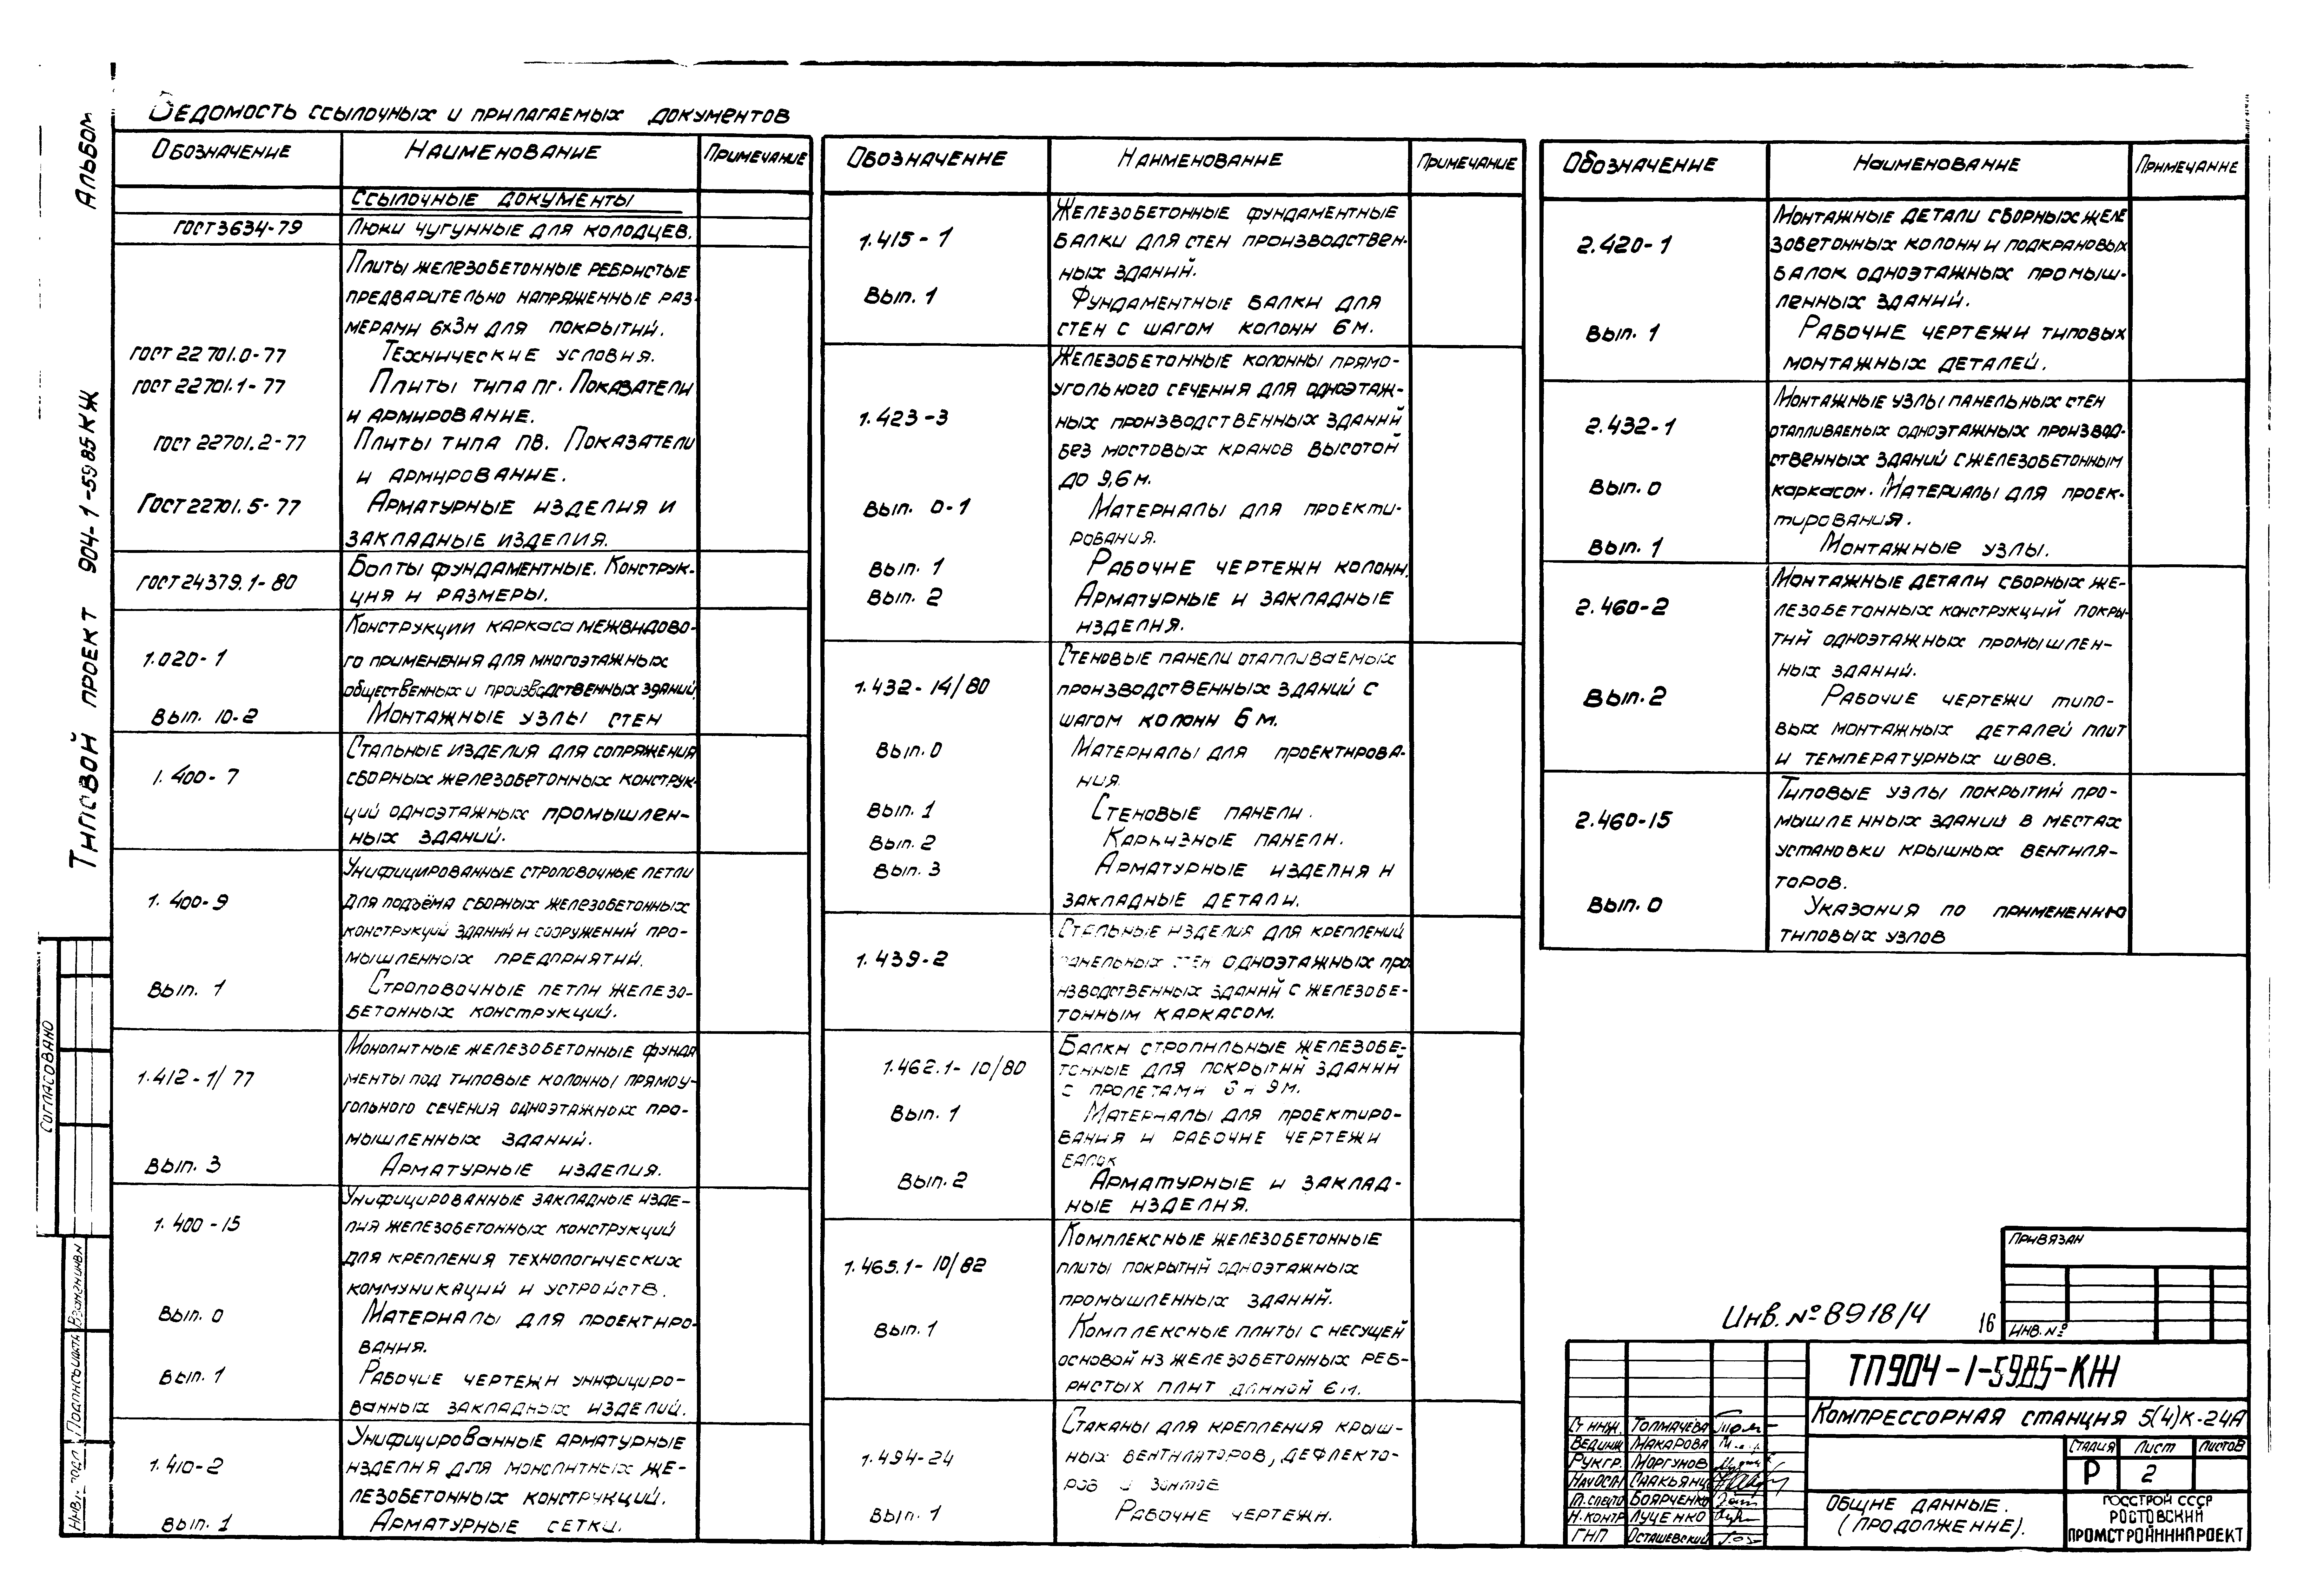 Альбом
Типовой проект 904-1-59.85 КЖ
Ведомость ссылочных и прилагаемых документов
Обозначение Наименование Примечание
Ссылочные документы
ГОСТ 3634-79 Люки чугунные для колодцев.
Плиты железобетонные ребристые
предварительно напряженные раз-
мерами 6х3м для покрытий.
ГОСТ 22701.0-77 Технические условия.
ГОСТ 22701.1-77 Плиты типа ПГ. Показатели
и армирование.
ГОСТ 22701.2-77 Плиты типа ПВ. Показатели
и армирование.
ГОСТ 22701.5-77 Арматурные изделия и
закладные изделия.
ГОСТ 24379.1-80 Болты фундаментные. Конструк-
ция и размеры.
Конструкции каркаса межвидово-
1.020-1 го применения для многоэтажных
общественных и производственных зданий
Вып. 10-2 Монтажные узлы стен
Стальные изделия для сопряжения
1.400-7 сборных железобетонных конструк-
ций одноэтажных промышлен-
ных зданий.
Унифицированные строповочные петли
1.400-9 для подъёма сборных железобетонных
конструкций зданий и сооружений про-
мышленных предприятий.
Вып. 1 Строповочные петли железо-
бетонных конструкций.
Монолитные железобетонные фунда
1.412-1/77 менты под типовые колонны прямоу-
гольного сечения одноэтажных про-
мышленных зданий.
Вып. 3 Арматурные изделия.
Унифицированные закладные изде-
1.400-15 лия железобетонных конструкций
для крепления технологических
коммуникаций и устройств.
Вып. 0 Материалы для проектиро-
вания.
Вып. 1 Рабочие чертежи унифициро-
ванных закладных изделий.
Унифицированные арматурные
1.410-2 изделия для монолитных же-
лезобетонных конструкций.
Вып. 1 Арматурные сетки.
Обозначение Наименование Примечание
Железобетонные фундаментные
1.415-1 балки для стен производствен-
ных зданий.
Вып. 1 Фундаментные балки для
стен с шагом колонн 6м.
Железобетонные колонны прямо-
угольного сечения для одноэтаж-
1.423-3 ных производственных зданий
без мостовых кранов высотой
до 9,6м.
Вып. 0-1 Материалы для проекти-
рования.
Вып. 1 Рабочие чертежи колонн.
Вып. 2 Арматурные и закладные
изделия.
Стеновые панели отапливаемых
1.432-14/80 производственных зданий с
шагом колонн 6м.
Вып. 0 Материалы для проектирова-
ния.
Вып. 1 Стеновые панели.
Вып. 2 Карнизные панели.
Вып. 3 Арматурные изделия и
закладные детали.
Стальные изделия для креплений
1.439-2 панельных стен одноэтажных про
изводственных зданий с железобе-
тонным каркасом.
Балки стропильные железобе-
1.462.1-10/80 тонные для покрытий зданий
с пролетами 6 и 9м.
Вып. 1 Материалы для проектиро-
вания и рабочие чертежи
балок
Вып. 2 Арматурные и заклад-
ные изделия.
Комплексные железобетонные
1.465.1-10/82 плиты покрытий одноэтажных
промышленных зданий.
Вып. 1 Комплексные плиты с несущей
основой из железобетонных реб-
ристых плит длиной 6м.
Стаканы для крепления крыш-
1.494-24 ных вентиляторов, дефлекто-
ров и зонтов
Вып. 1 Рабочие чертежи.
Обозначение Наименование Примечание
Монтажные детали сборных желе
2.420-1 зобетонных колонн и подкрановых
балок одноэтажных промыш-
ленных зданий.
Вып. 1 Рабочие чертежи типовых
монтажных деталей.
Монтажные узлы панельных стен
2.432-1 отапливаемых одноэтажных производ-
ственных зданий с железобетонным
Вып. 0 каркасом. Материалы для проек-
тирования.
Вып. 1 Монтажные узлы.
Монтажные детали сборных же-
2.460-2 лезобетонных конструкций покры-
тий одноэтажных промышлен-
ных зданий.
Вып. 2 Рабочие чертежи типо-
вых монтажных деталей плит
и температурных швов.
Типовые узлы покрытий про-
2.460-15 мышленных зданий в местах
установки крышных вентиля-
торов.
Вып. 0 Указания по применению
типовых узлов
Согласовано
Взамен инв.н
Подпись и дата
Инв.№ подл.
Привязан
Инв. №
Инв. № 8918/4 16
ТП 904-1-59.85-КЖ
Компрессорная станция 5(4)К-24А
Ст. инж. Толмачева
Вед. инж. Макарова
Рук. гр. Моргунов
Нач ОСН Саакьянц
Гл. спец. Боярченко
Н. контр Луценко
ГИП Осташевский
Стадия Лист Листов
Р 2
Общие данные.
(продолжение).
Госстрой СССР
Ростовский
Промстройниипроект